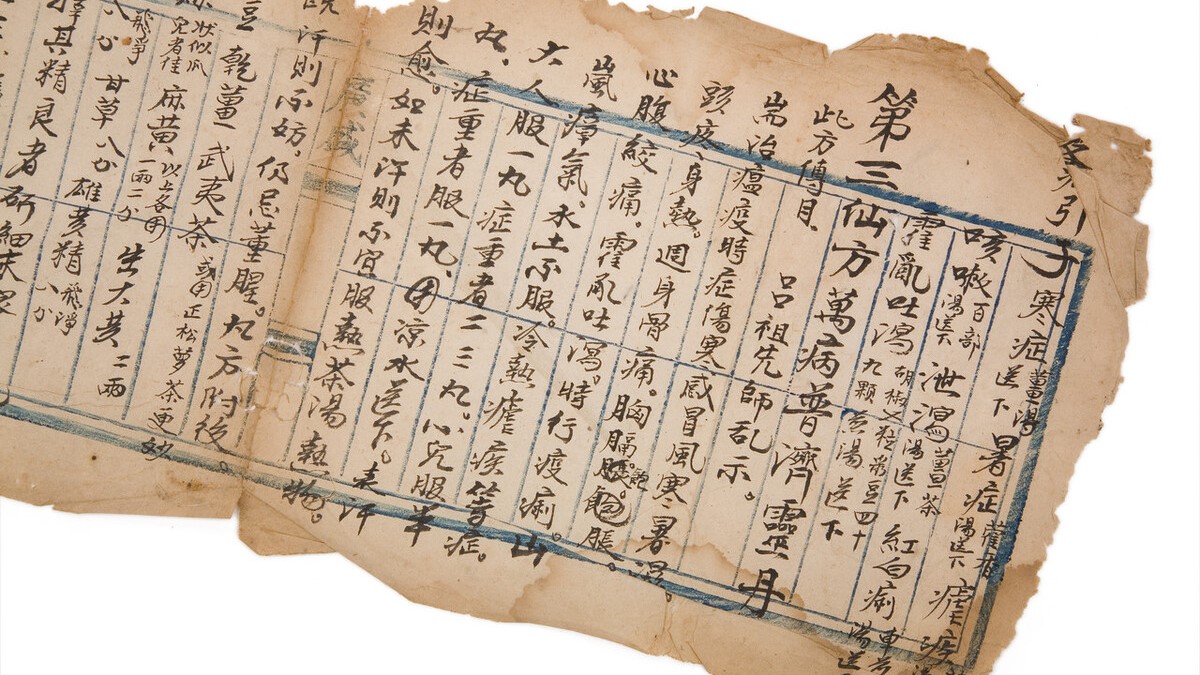 引子寒症薑湯送下暑症藿香
咳嗽百部湯送下泄瀉薑茶湯送下瘧疾
霍亂吐瀉胡椒九顆菉豆四十粒湯送下紅白痢車前湯送
第三仙方萬病普濟靈丹
此方傳自呂祖先師乩示。
耑治瘟疫時症傷寒感冒風寒暑濕。
頭疼身熱。週身骨痛。胸膈飽脹。
心腹絞痛。霍乱吐瀉。時行疫痢。山
嵐瘴氣。水土不服。冷熱瘧疾等症。
大人服一丸症重者二三丸。小児服半
丸、症重者服一丸、用凉水送下。表汗
則愈。如未汗則不宜服熱茶湯熱物。
汗則不妨。仍忌葷腥。丸方附後。
乾薑武夷茶或用正松蘿茶更妙
狀似瓜児者佳麻黃以上各用一兩二分
飛净八分甘草八分生大黃二兩
擇其精良者研細末
雄黃精飛淨八分